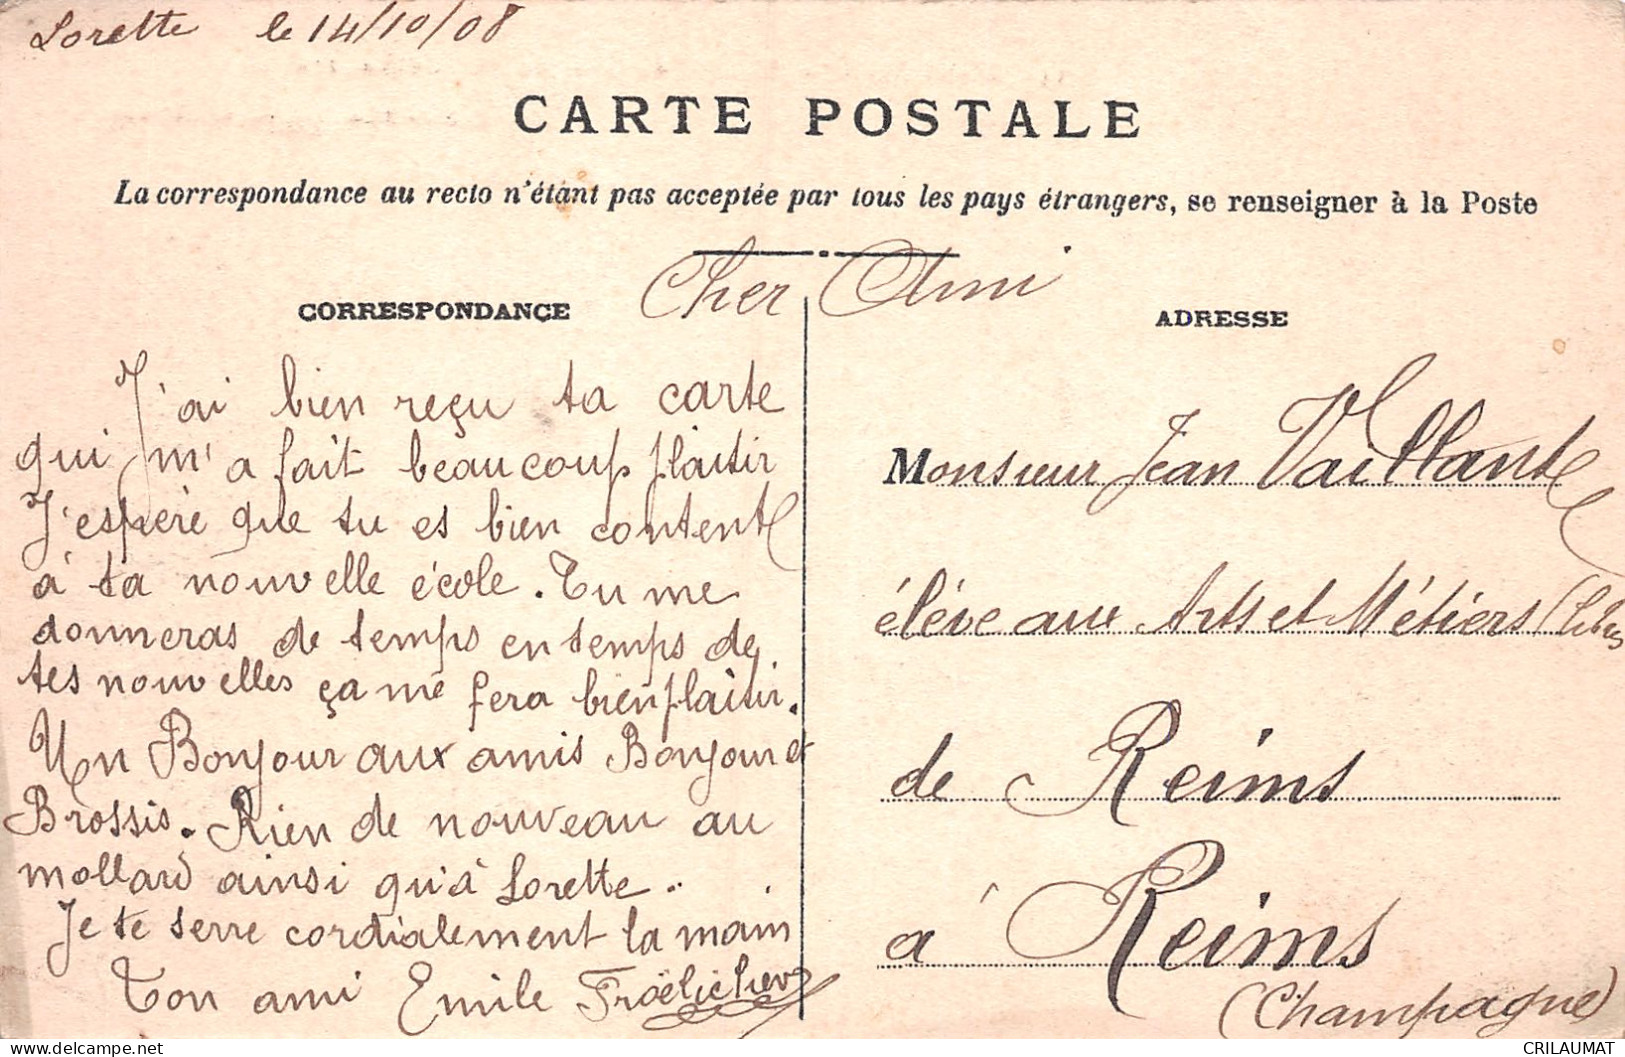 Lorette le 14/10/08
CARTE POSTALE
La correspondance au recto n'étant pas acceptée par tous les pays étrangers, se renseigner à la Poste
Cher Ami
CORRESPONDANCE
J'ai bien reçu ta carte
qui m'a fait beaucoup plaisir
J'espère que tu es bien content
à ta nouvelle école. Tu me
donneras de temps en temps de
tes nouvelles ça me fera bien plaisir.
Un Bonjour aux amis Bonjour et
Brossis. Rien de nouveau au
mollard ainsi qu'à Lorette.
Je te serre cordialement la main
Ton ami Emile Froëlicher
ADRESSE
Monsieur Jean Vaillant
élève aux Arts et Métiers
de Reims
à Reims
(Champagne)
CRILAUMAT